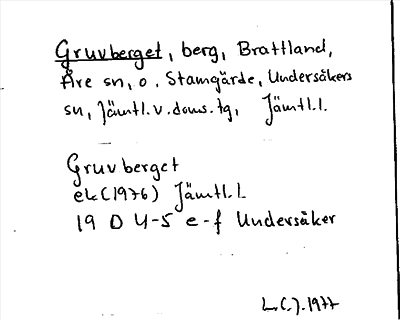 Gruvberget, berg, Brattland,
Åre sn, o. Stamgärde, Undersåkers
sn, Jämtl.v.doms.tg, Jämtl.l.
Gruvberget
ek (1976) Jämtl.l.
19 D 4-5 e-f Undersåker
L.C.J. 1977